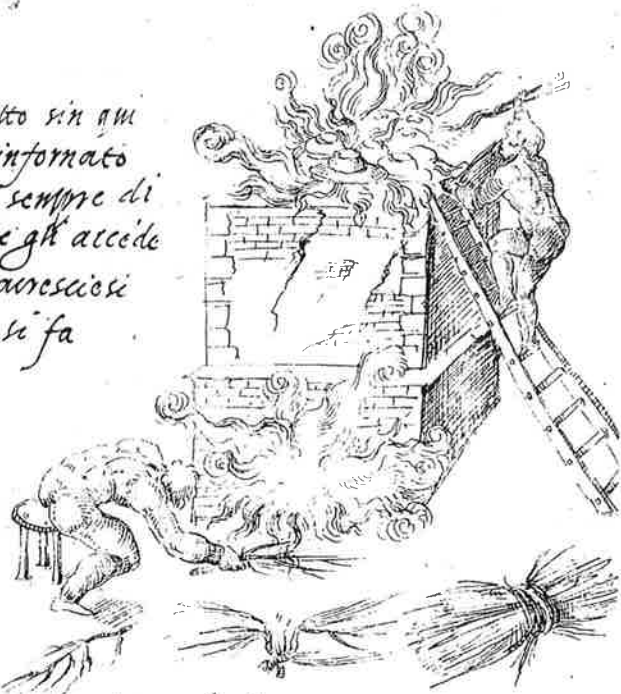 tto sin qui
infornato
sempre di
e gli accede
si fa